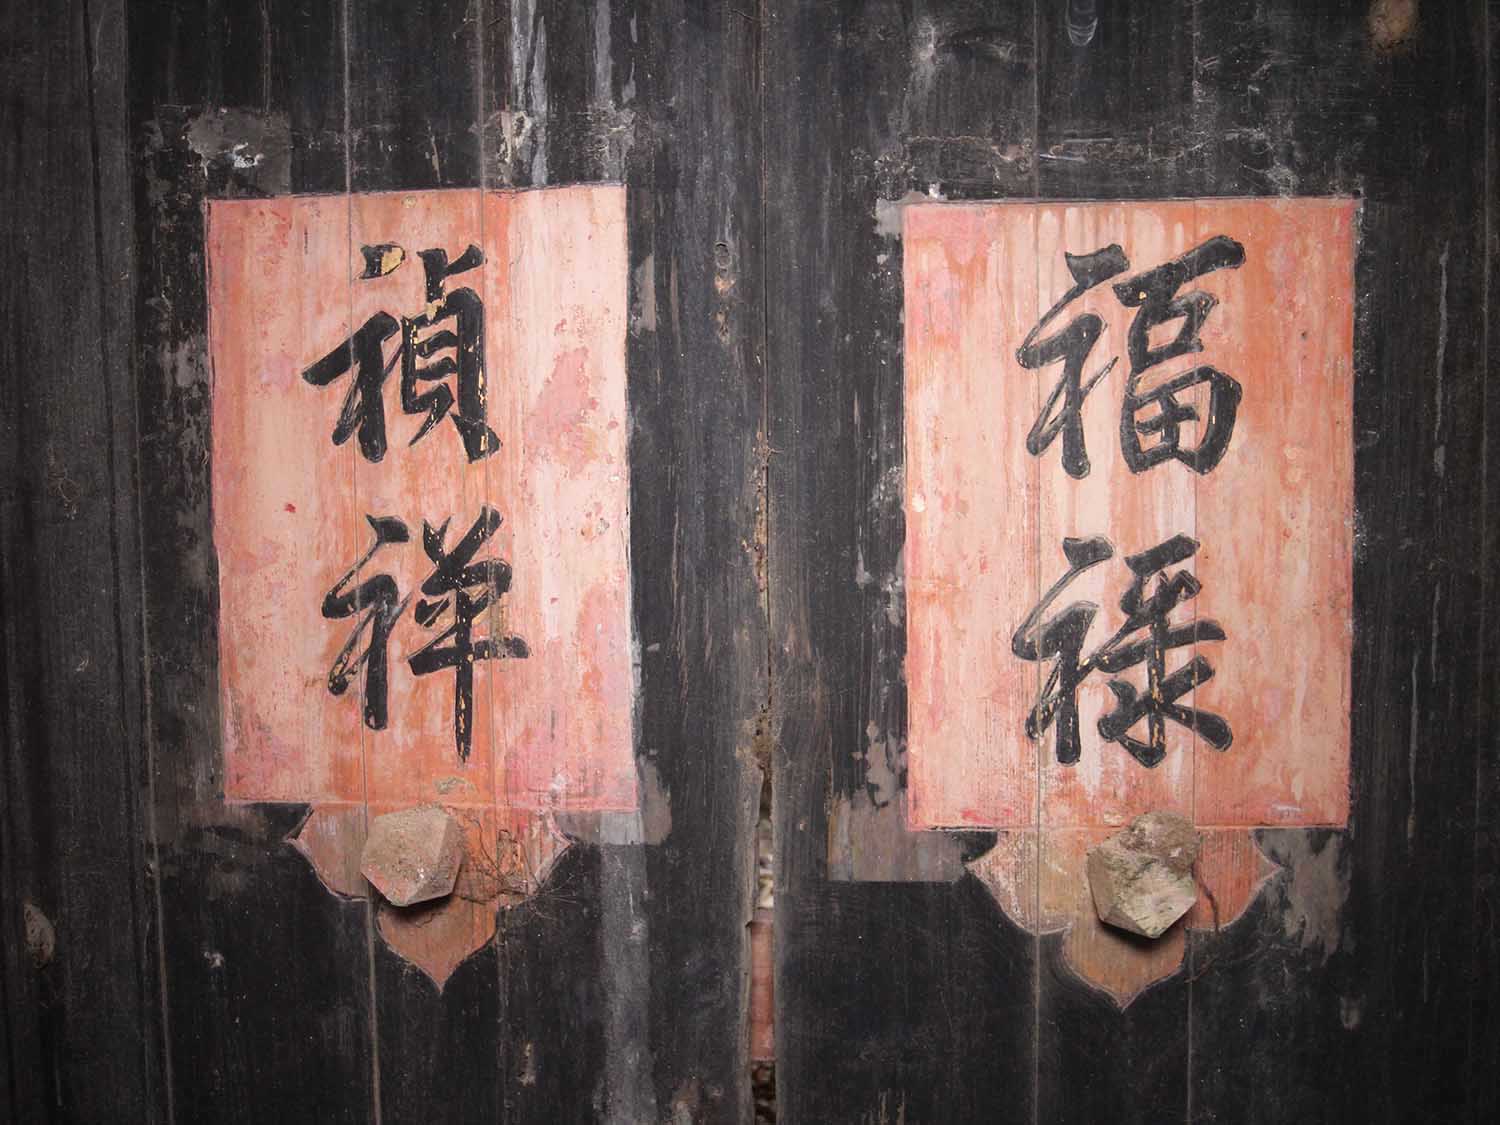 福祿
禎祥